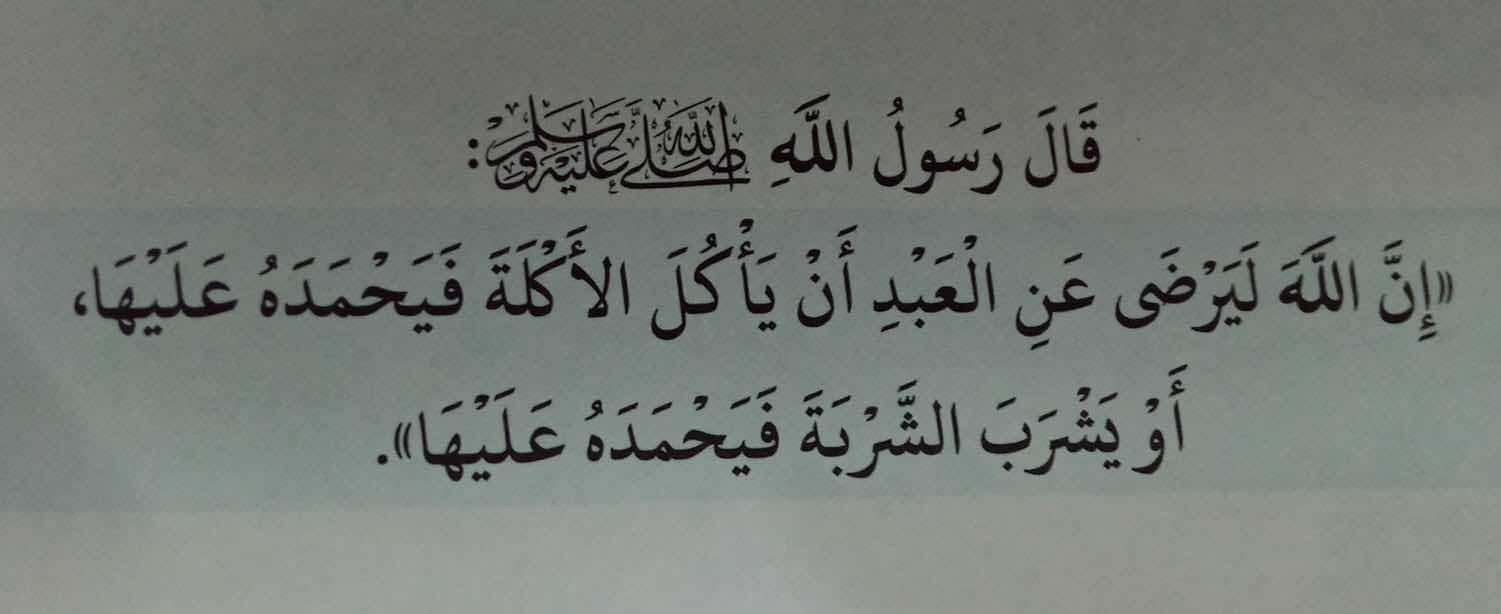 قَالَ رَسُولُ اللَّهِ صَلَّى اللَّهُ عَلَيْهِ وَسَلَّمَ:
«إِنَّ اللَّهَ لَيَرْضَى عَنِ الْعَبْدِ أَنْ يَأْكُلَ الأَكْلَةَ فَيَحْمَدَهُ عَلَيْهَا،
أَوْ يَشْرَبَ الشَّرْبَةَ فَيَحْمَدَهُ عَلَيْهَا».